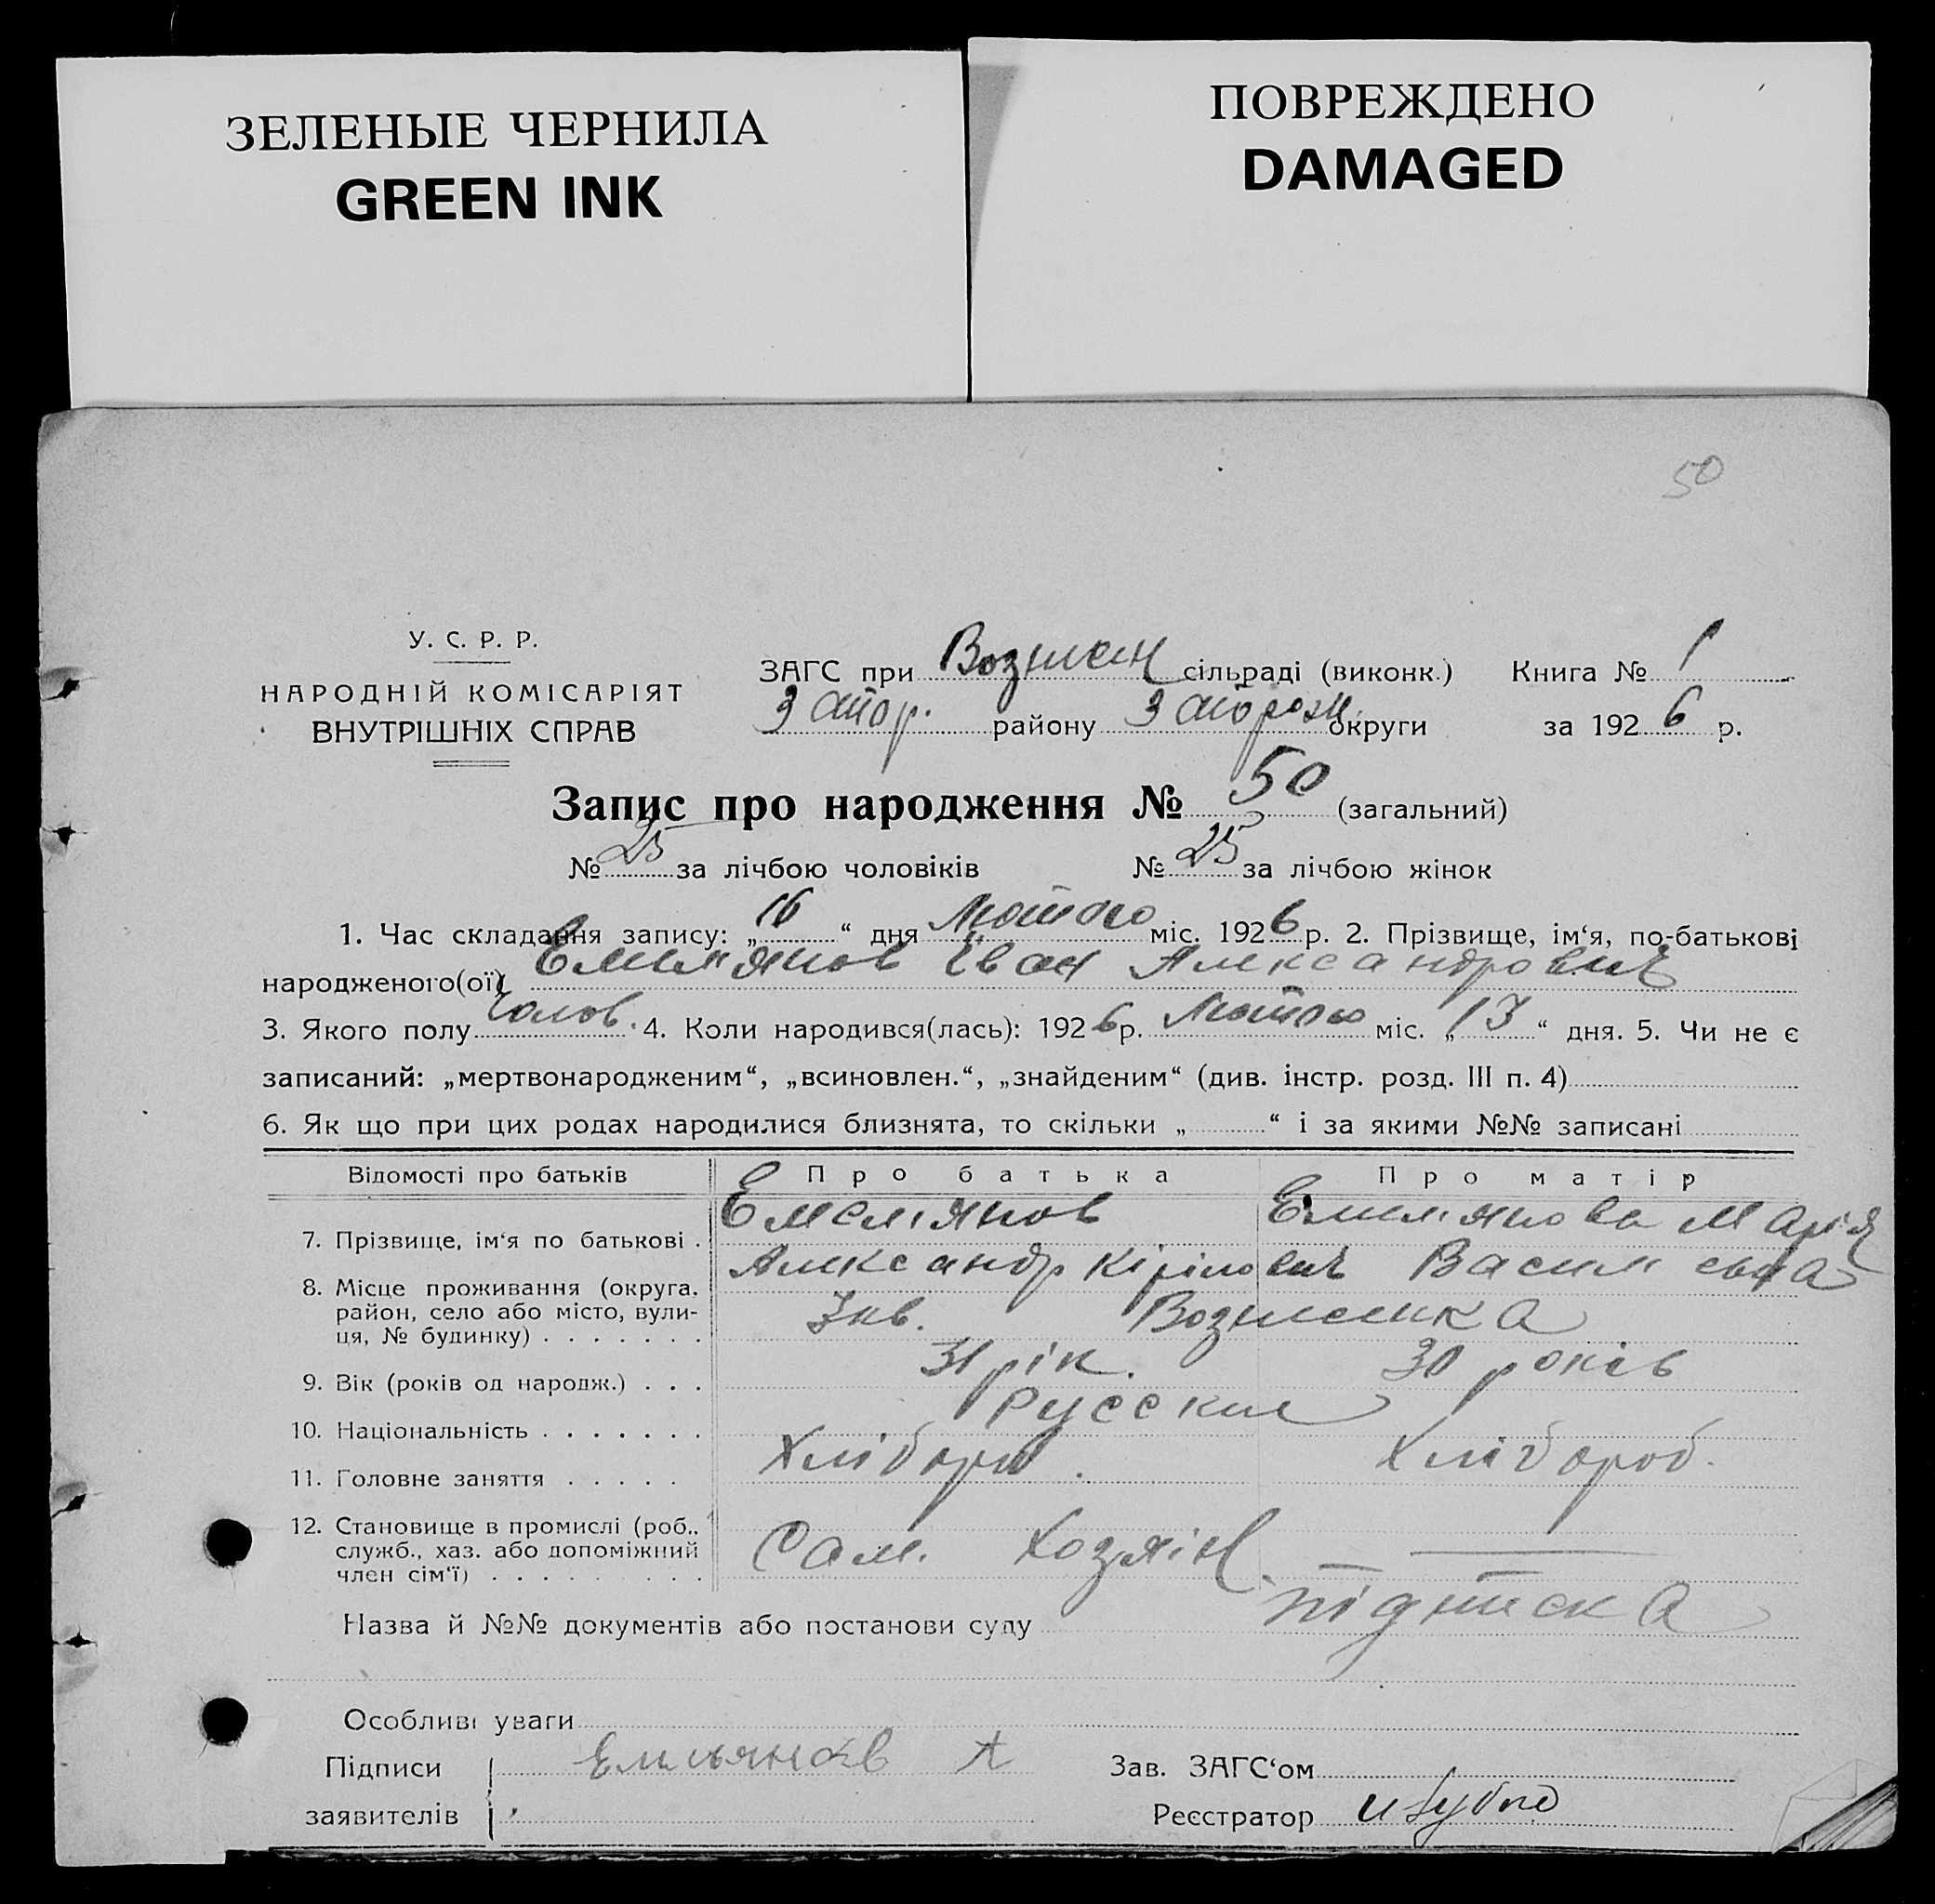 ЗЕЛЕНЫЕ ЧЕРНИЛА
GREEN INK
ПОВРЕЖДЕНО
DAMAGED
50
У. С. Р. Р.
НАРОДНІЙ КОМІСАРІЯТ
ВНУТРІШНІХ СПРАВ
ЗАГС при Вознесен сільраді (виконк.) Книга № 1
Запор. району Запорозж. округи за 1926 р.
Запис про народження № 50 (загальний)
№ 25 за лічбою чоловіків № 25 за лічбою жінок
1. Час складання запису: „16“ дня Лютого міс. 1926 р. 2. Прізвище, ім‘я, по-батькові
народженого(ої) Емельянов Іван Александрович
3. Якого полу Чолов. 4. Коли народився(лась): 1926 р. Лютого міс. „13“ дня. 5. Чи не є
записаний: „мертвонародженим“, „всиновлен.“, „знайденим“ (див. інстр. розд. III п. 4)
6. Як що при цих родах народилися близнята, то скільки „ “ і за якими №№ записані
Відомості про батьків Про батька Про матір
7. Прізвище, ім‘я по батькові . Емельянов Емельянова Марія
Александр Кірілович Васильевна
8. Місце проживання (округа, район, село або місто, вули-
ця, № будинку) . . . . . . . Зкв. Вознесенка
9. Вік (років од народж.) . . . 31 рік. 30 років
10. Національність . . . . . . . Русские
11. Головне заняття . . . . . Хлібороб. Хлібороб.
12. Становище в промислі (роб.,
служб., хаз. або допоміжний
член сім‘ї) . . . . . . . . . Сам. Хозяїн. —
Назва й №№ документів або постанови суду підписка
Особливі уваги
Підписи Емильянов А Зав. ЗАГС‘ом
заявителів Реєстратор